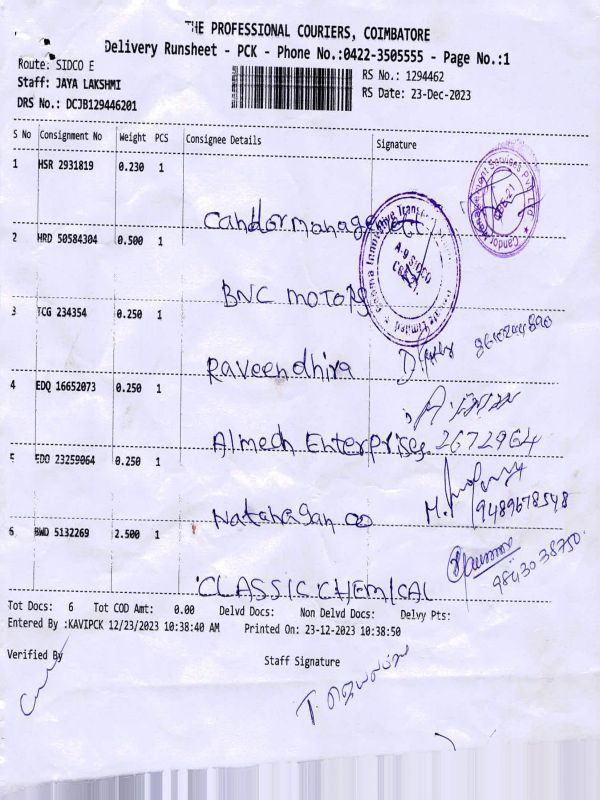 THE PROFESSIONAL COURIERS, COIMBATORE
Delivery Runsheet - PCK - Phone No.:0422-3505555 - Page No.:1
Route: SIDCO E
RS No.: 1294462
Staff: JAYA LAKSHMI
RS Date: 23-Dec-2023
DRS No.: DCJB129446201
S No Consignment No Weight PCS Consignee Details Signature
1 HSR 2931819 0.230 1
Candor management
2 HRD 50584304 0.500 1
A-9 SIDCO
BNC MOTORS
3 TCG 234354 0.250 1
Raveendhira
4 EDQ 16652073 0.250 1
Almech Enterprises 2672964
5 EDO 23259064 0.250 1
Nataragan co
M. 9489678548
6 BWD 5132269 2.500 1
9843038750
CLASSIC CHEMICAL
Tot Docs: 6 Tot COD Amt: 0.00 Delvd Docs: Non Delvd Docs: Delvy Pts:
Entered By :KAVIPCK 12/23/2023 10:38:40 AM Printed On: 23-12-2023 10:38:50
Verified By
Staff Signature